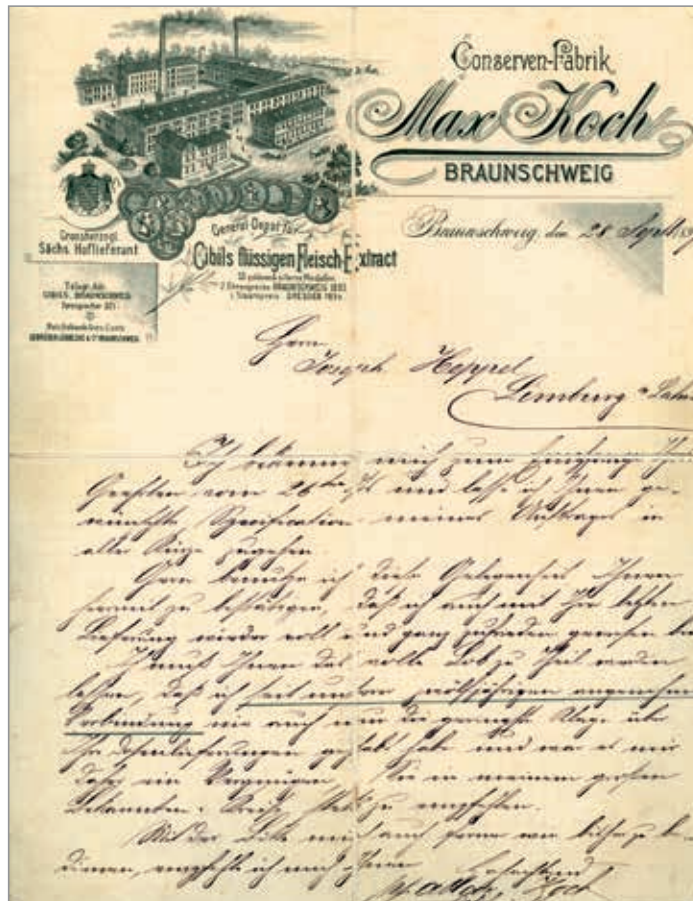 Conserven-Fabrik
Max Koch
BRAUNSCHWEIG
Grossherzogl.
Sächs. Hoflieferant
General-Depot für
Cibils flüssigen Fleisch-Extract
BRAUNSCHWEIG
DRESDEN
Telegr. Adr.
CIBILS, BRAUNSCHWEIG
Braunschweig, den 28 Sept. 189
Herrn
Joseph Heppel
Limburg a Lahn
Ich bekenne mich zum Empfange Ihres
Geehrten vom 26ten und lasse ich Ihnen ge-
wünschte Specification meines Auftrages in
aller Kürze zugehen.
Gern benutze ich diese Gelegenheit Ihnen
hiermit zu bestätigen, daß ich auch mit Ihrer letzten
Lieferung wieder voll und ganz zufrieden gewesen bin
Ich muß Ihnen das volle Lob zu Theil werden
lassen, daß ich seit unserer zwölfjährigen angenehmen
Verbindung nie auch nur die geringste Klage über
Ihre Lieferungen gehabt habe und war es mir
daher ein Vergnügen, Sie in meinem großen
Bekannten-Kreise stets zu empfehlen.
Mit der Bitte mich auch ferner wie bisher zu be-
dienen, empfehle ich mich Ihnen
Hochachtend
Koch